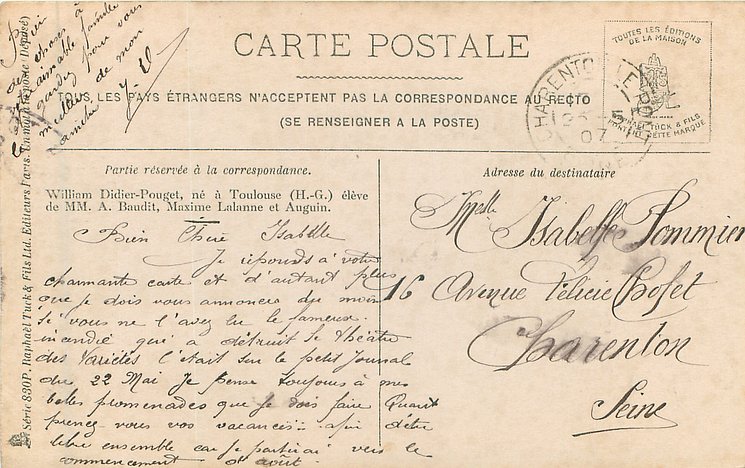 CARTE POSTALE
TOUS LES PAYS ÉTRANGERS N'ACCEPTENT PAS LA CORRESPONDANCE AU RECTO
(SE RENSEIGNER A LA POSTE)
TOUTES LES ÉDITIONS
DE LA MAISON
RAPHAEL TUCK & FILS
PORTENT CETTE MARQUE
CHARENTON LE PONT
07
Partie réservée à la correspondance.
William Didier-Pouget, né à Toulouse (H.-G.) élève
de MM. A. Baudit, Maxime Lalanne et Auguin.
Bien Chère Isabelle
Je réponds à votre
charmante carte et d'autant plus
que je dois vous annoncer du moins
si vous ne l'avez lu le fameux
incendie qui a détruit le Théâtre
des Variétés c'était sur le petit Journal
du 22 Mai Je pense toujours à mes
belles promenades que je dois faire Quant
prenez-vous vos vacances afin d'être
libre ensemble car je partirai vers le
commencement d'août.
Adresse du destinataire
Melle Isabelle Pommier
16 Avenue Félicie Cholet
Charenton
Seine
choses à
aimable famille
gardez pour vous
de mon
amitié
Série 830P. Raphaël Tuck & Fils Ltd. Editeurs Paris. Enmoidautposte (Déposé)